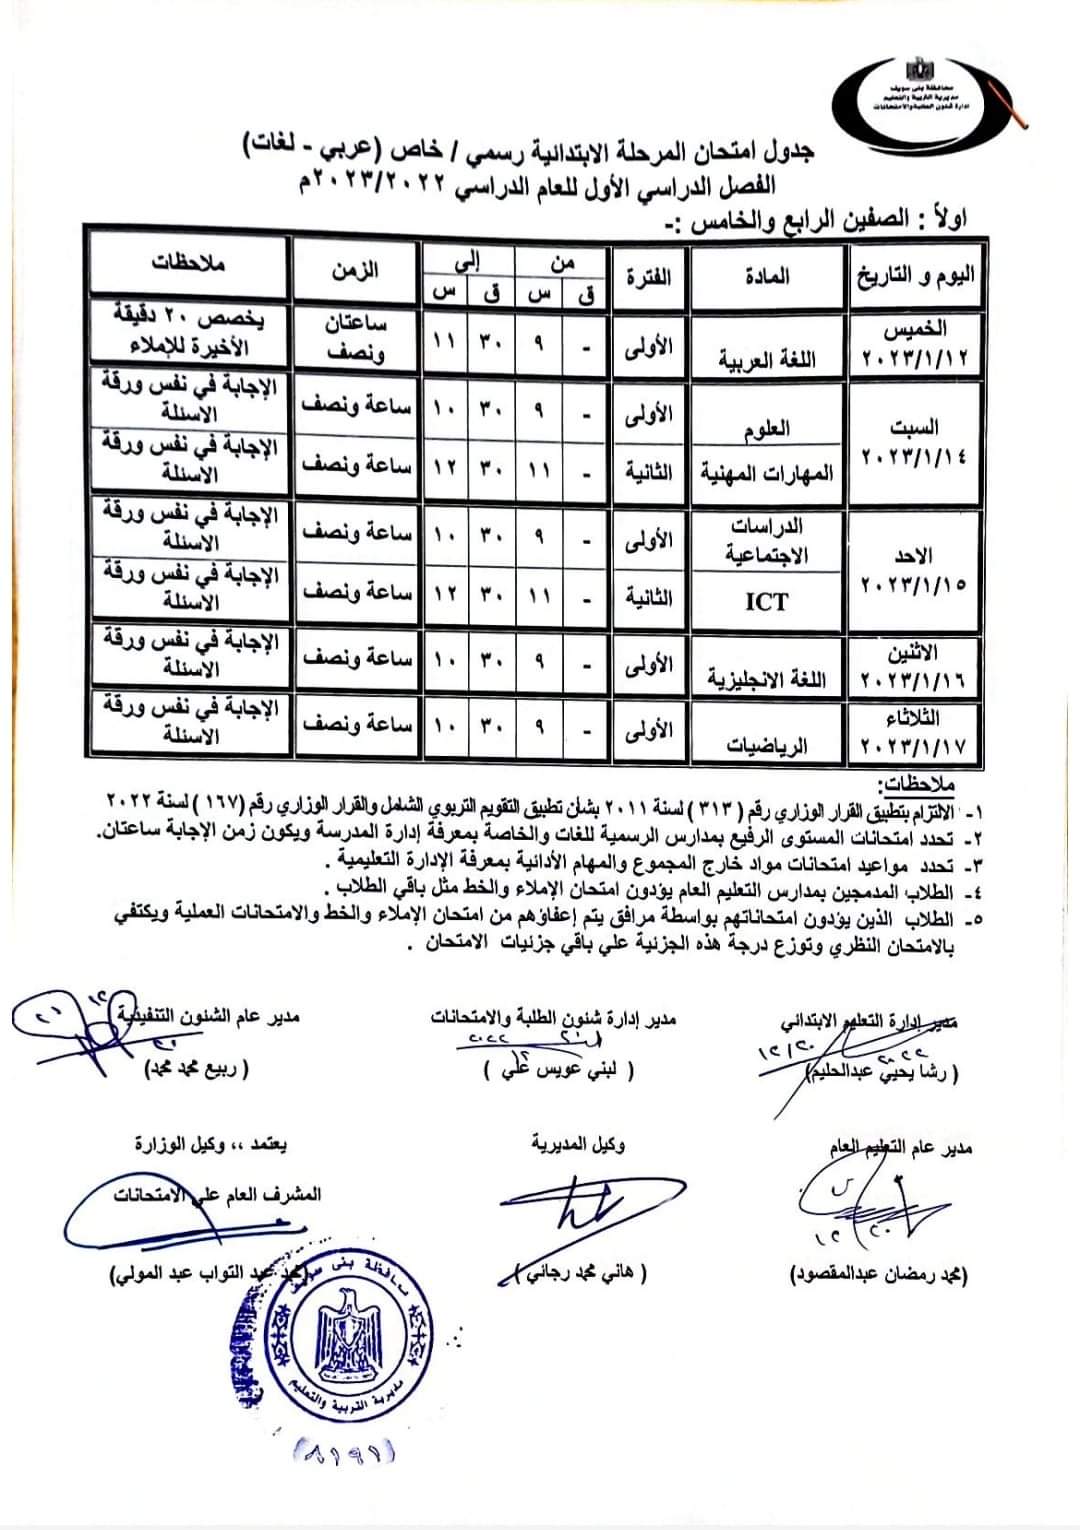 محافظة بنى سويف
مديرية التربية والتعليم
إدارة شئون الطلبة والامتحانات
جدول امتحان المرحلة الابتدائية رسمي / خاص (عربي - لغات)
الفصل الدراسي الأول للعام الدراسي ٢٠٢٣/٢٠٢٢م
اولاً : الصفين الرابع والخامس :-
اليوم و التاريخ المادة الفترة من إلي الزمن ملاحظات
ق س ق س
الخميس ٢٠٢٣/١/١٢ اللغة العربية الأولى - ٩ ٣٠ ١١ ساعتان ونصف يخصص ٢٠ دقيقة الأخيرة للإملاء
السبت ٢٠٢٣/١/١٤ العلوم الأولى - ٩ ٣٠ ١٠ ساعة ونصف الإجابة في نفس ورقة الاسئلة
المهارات المهنية الثانية - ١١ ٣٠ ١٢ ساعة ونصف الإجابة في نفس ورقة الاسئلة
الاحد ٢٠٢٣/١/١٥ الدراسات الاجتماعية الأولى - ٩ ٣٠ ١٠ ساعة ونصف الإجابة في نفس ورقة الاسئلة
ICT الثانية - ١١ ٣٠ ١٢ ساعة ونصف الإجابة في نفس ورقة الاسئلة
الاثنين ٢٠٢٣/١/١٦ اللغة الانجليزية الأولى - ٩ ٣٠ ١٠ ساعة ونصف الإجابة في نفس ورقة الاسئلة
الثلاثاء ٢٠٢٣/١/١٧ الرياضيات الأولى - ٩ ٣٠ ١٠ ساعة ونصف الإجابة في نفس ورقة الاسئلة
ملاحظات:
١- الالتزام بتطبيق القرار الوزاري رقم ( ٣١٣ ) لسنة ٢٠١١ بشأن تطبيق التقويم التربوي الشامل والقرار الوزاري رقم (١٦٧ ) لسنة ٢٠٢٢
٢- تحدد امتحانات المستوى الرفيع بمدارس الرسمية للغات والخاصة بمعرفة إدارة المدرسة ويكون زمن الإجابة ساعتان.
٣- تحدد مواعيد امتحانات مواد خارج المجموع والمهام الأدائية بمعرفة الإدارة التعليمية .
٤- الطلاب المدمجين بمدارس التعليم العام يؤدون امتحان الإملاء والخط مثل باقي الطلاب .
٥- الطلاب الذين يؤدون امتحاناتهم بواسطة مرافق يتم إعفاؤهم من امتحان الإملاء والخط والامتحانات العملية ويكتفي
بالامتحان النظري وتوزع درجة هذه الجزئية علي باقي جزئيات الامتحان .
مدير إدارة التعليم الابتدائي مدير إدارة شئون الطلبة والامتحانات مدير عام الشئون التنفيذية
( رشا يحيي عبدالحليم) ( لبني عويس علي ) ( ربيع محمد محمد)
مدير عام التعليم العام وكيل المديرية يعتمد ،، وكيل الوزارة
المشرف العام علي الامتحانات
(محمد رمضان عبدالمقصود) ( هاني محمد رجائي ) عبد التواب عبد المولي)
محافظة بنى سويف
مديرية التربية والتعليم